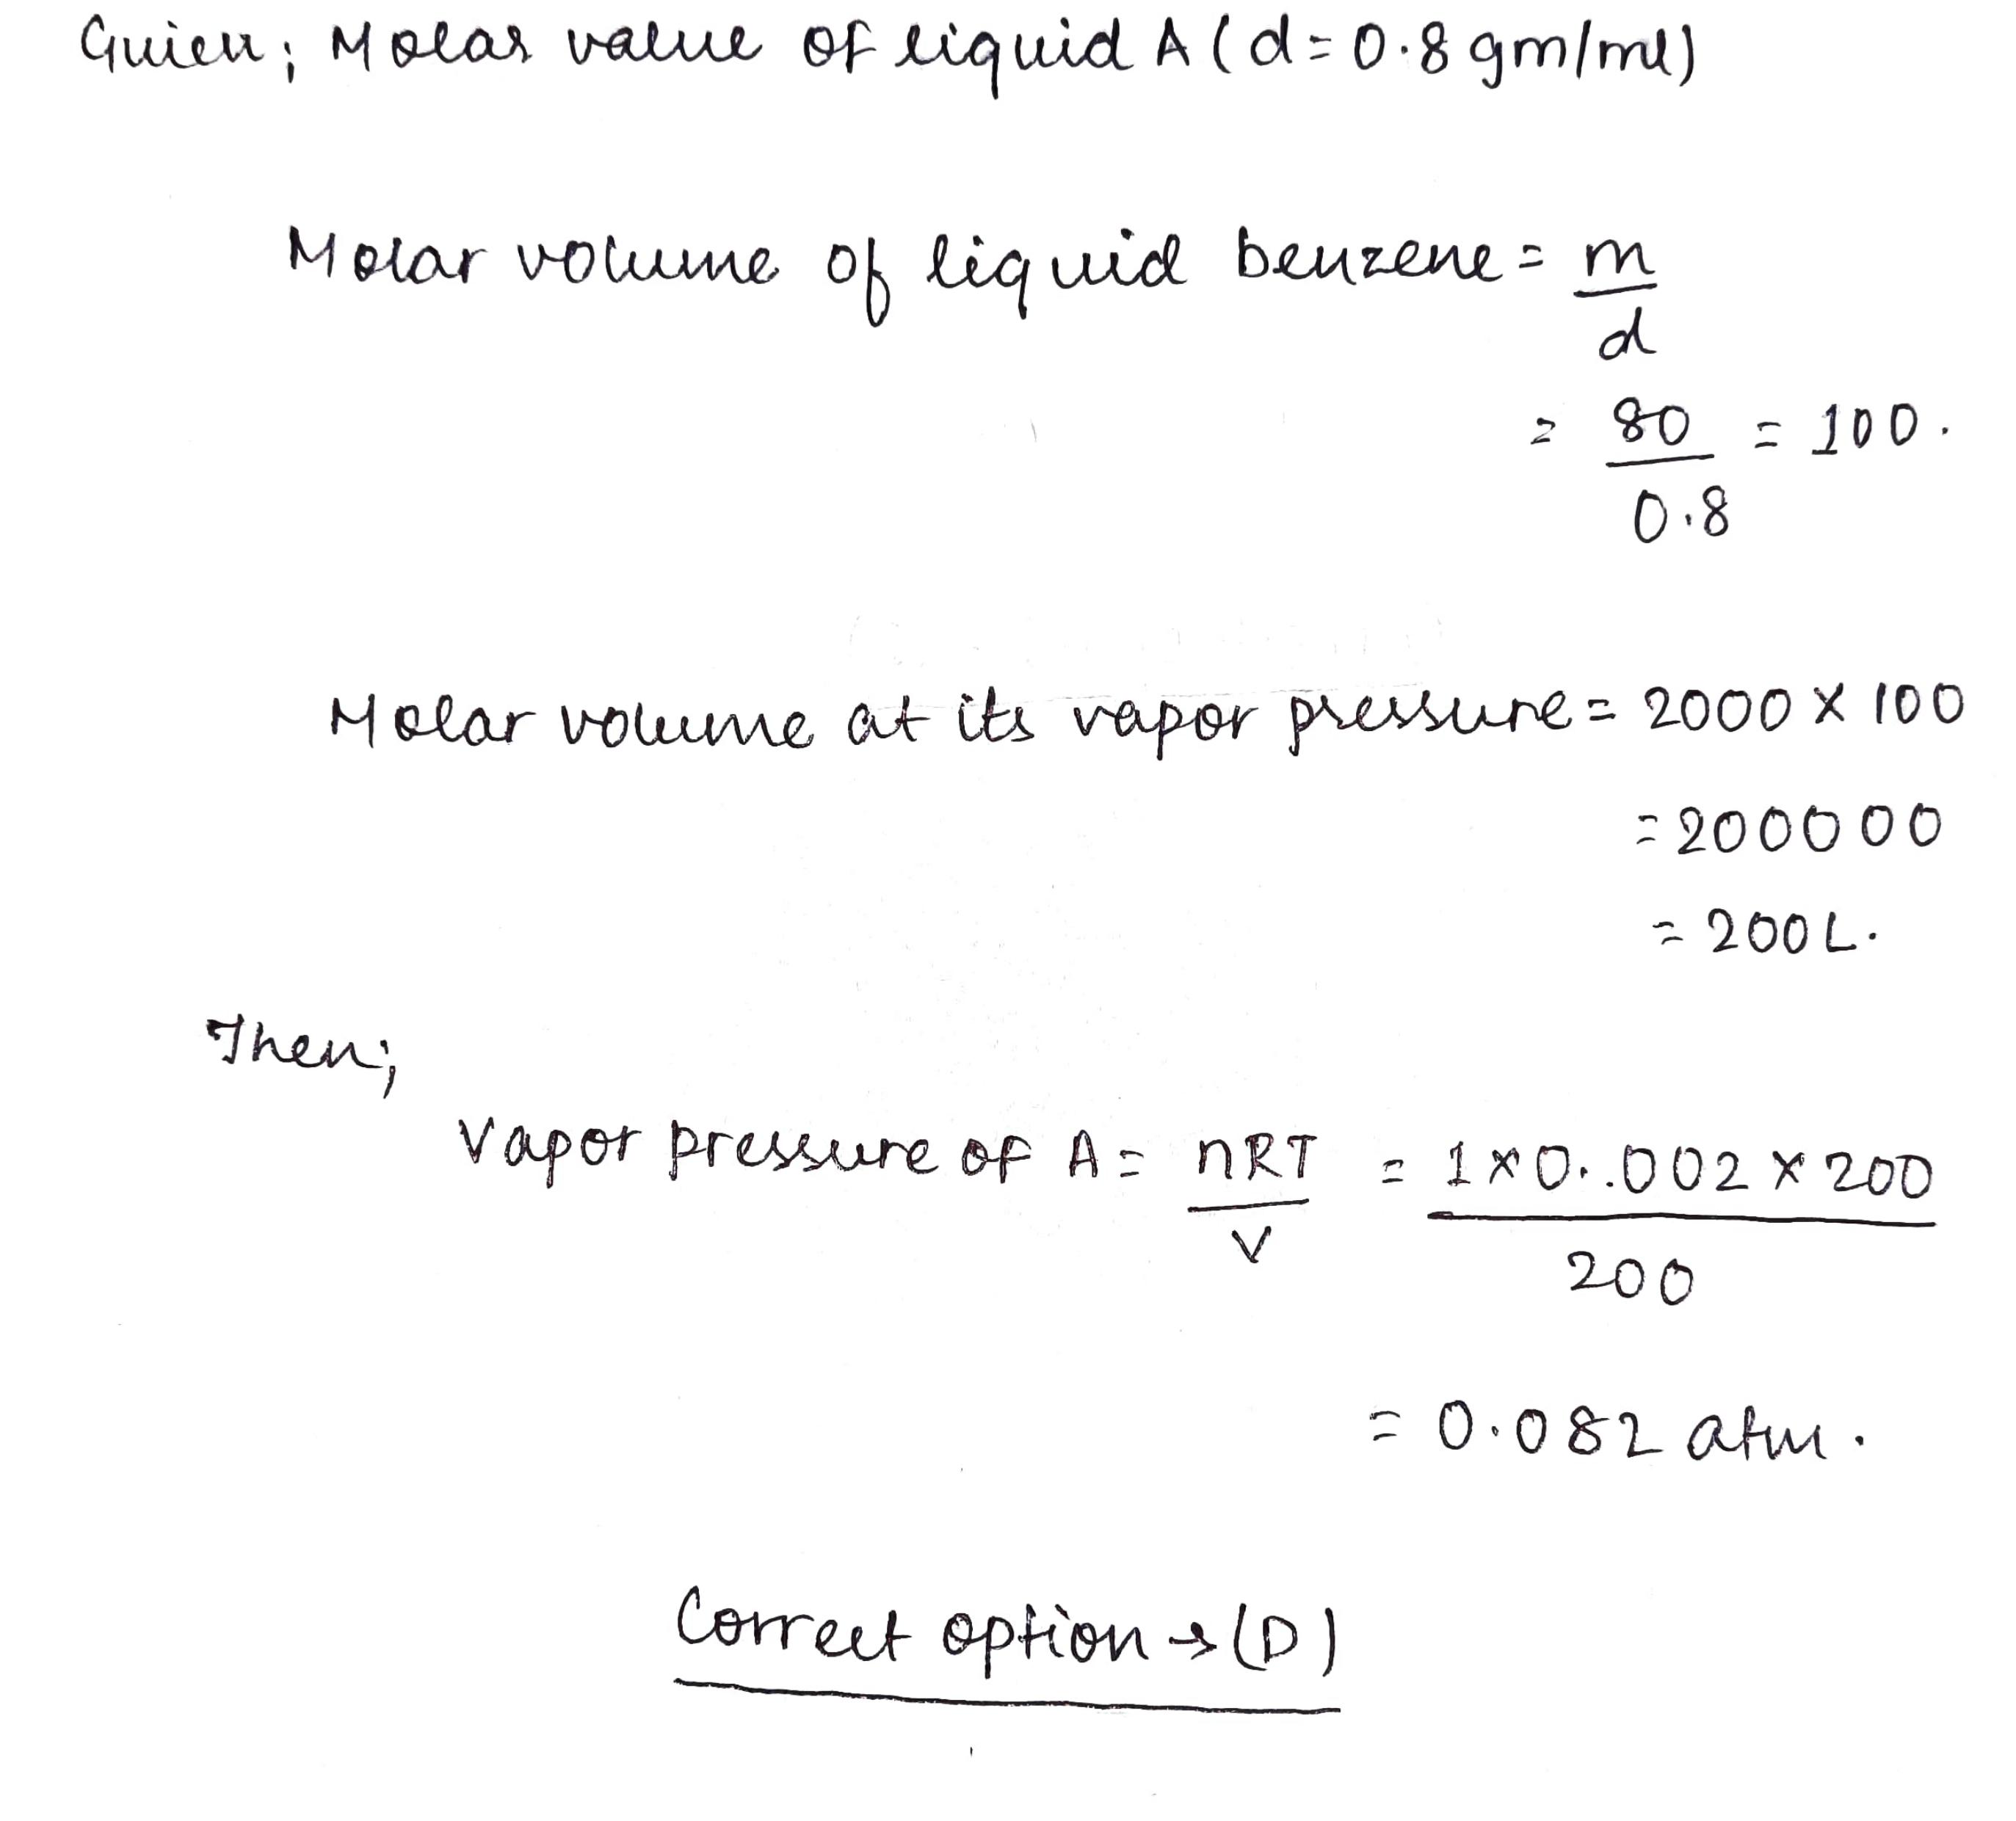 Given; Molar value of liquid A (d=0.8 gm/ml)
Molar volume of liquid benzene = m/d
= 80/0.8 = 100.
Molar volume at its vapor pressure = 2000 x 100
= 200000
= 200L.
Then;
Vapor pressure of A = nRT/V = 1x0..002 x 200/200
= 0.082 atm.
Correct option → (D)